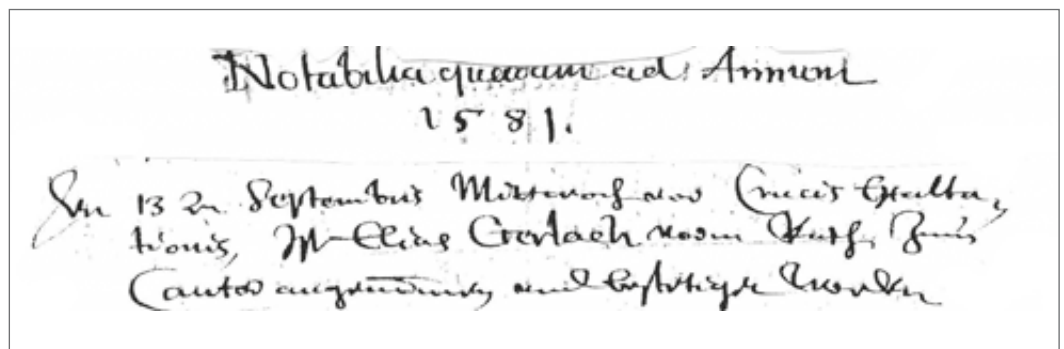 Notabilia quaedam ad Annum
1581.
Den 13 Septembris Mittwoch vor Crucis Exalta,
tionis, Elias Gerlach vom Rath Zum
Cantor angenommen und bestetiget worden